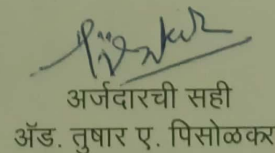 अर्जदारची सही
ॲड. तुषार ए. पिसोळकर